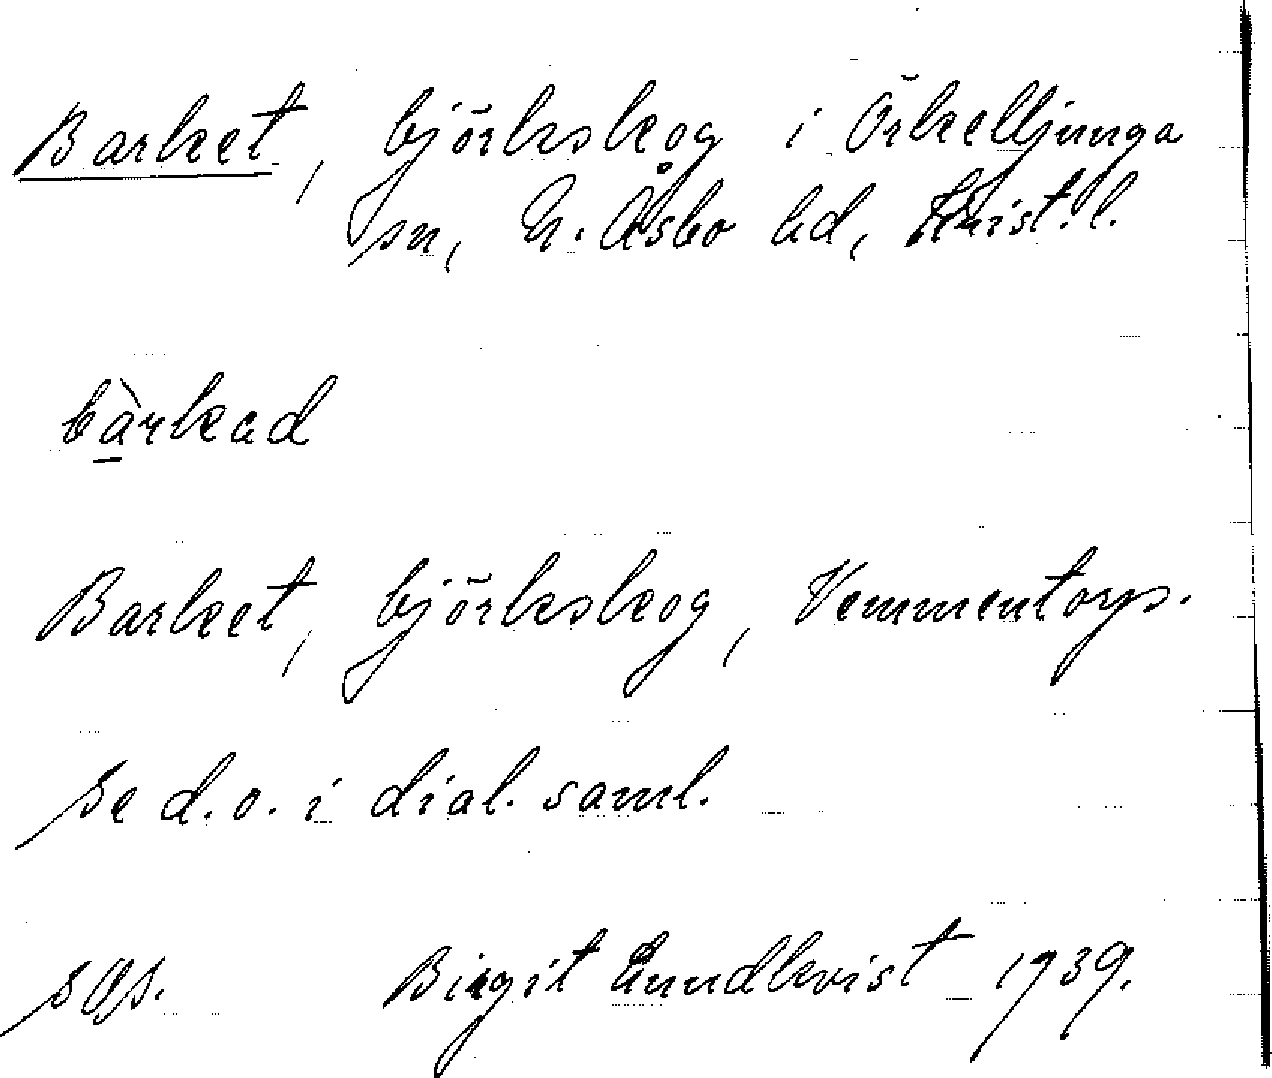 Barket, björkskog i Örkelljunga
sn, N. Åsbo hd, Krist. l.
bàrkad
Barket, björkskog, Vemmentorps.
Se d.o. i dial. saml.
SOS. Birgit Lundkvist 1939.